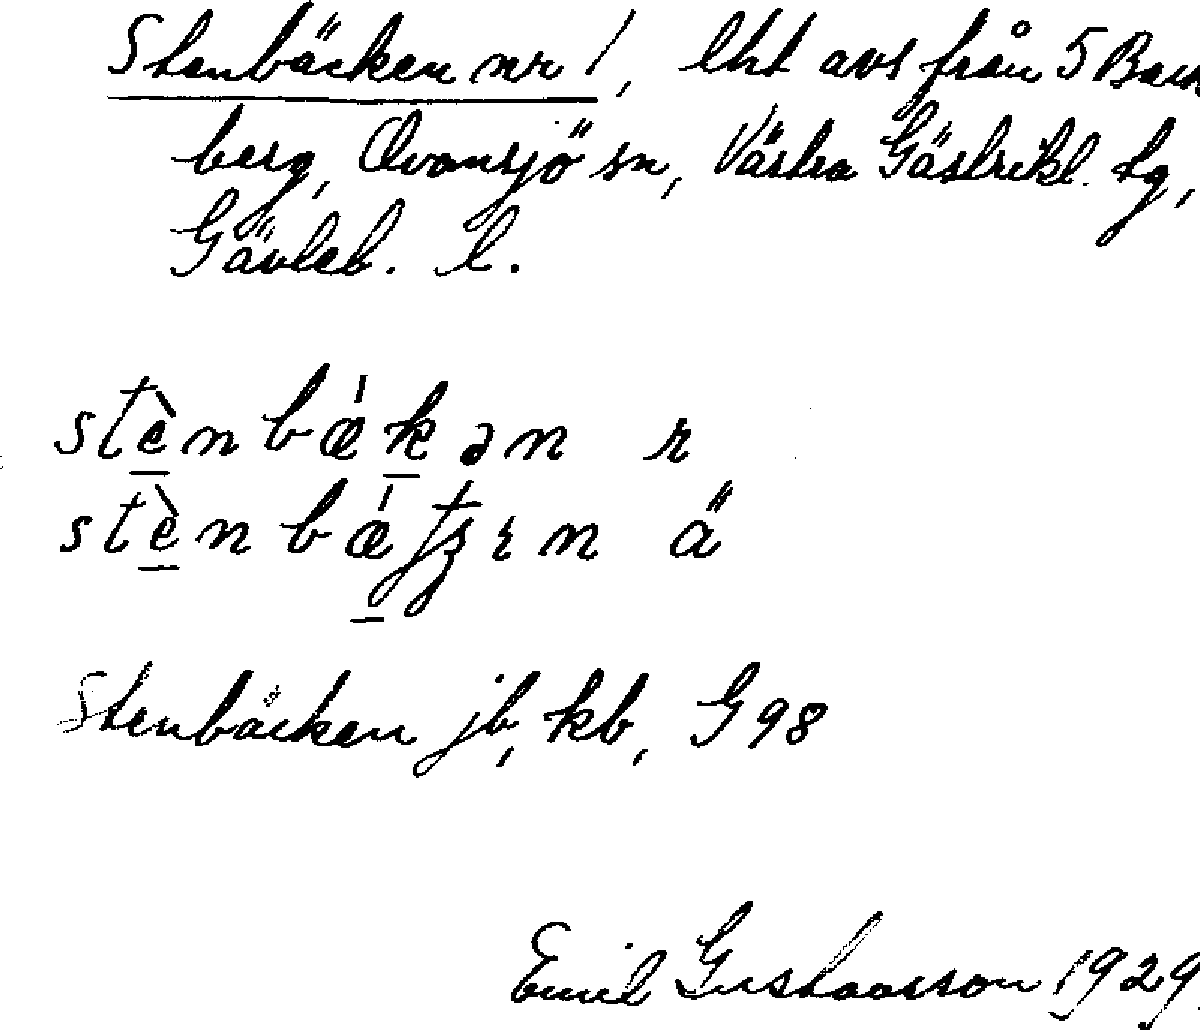 Stenbäcken nr 1, lht avs från 5 Back
berg, Ovansjö sn, Västra Gästrikl. tg,
Gävleb. l.
stènbǽkən r
stènbǽʈʂɪn ä
Stenbäcken jb, kb, G 98
Emil Gustavsson 1929